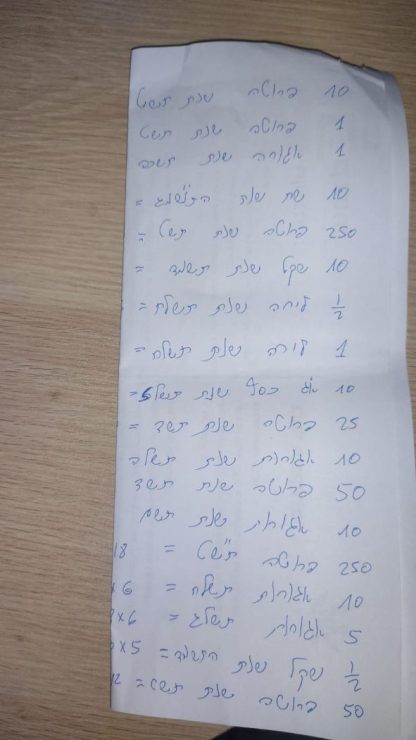 10 פרוטה שנת תשט
1 פרוטה שנת תשט
1 אגורה שנת תשכ
10 שח שנת התשמג =
250 פרוטה שנת תשט =
10 שקל שנת תשמד =
1/2 לירה שנת תשלח =
1 לירה שנת תשלח =
10 אג כסף שנת =
25 פרוטה שנת תשד =
10 אגורות שנת תשלב
50 פרוטה שנת תשד
10 אגורות שנת תשם
250 פרוטה תש"ט = 18
10 אגורות תשלח = 6×
5 אגורות תשלג = 6×
1/2 שקל שנת התשמד = 5×
50 פרוטה שנת =